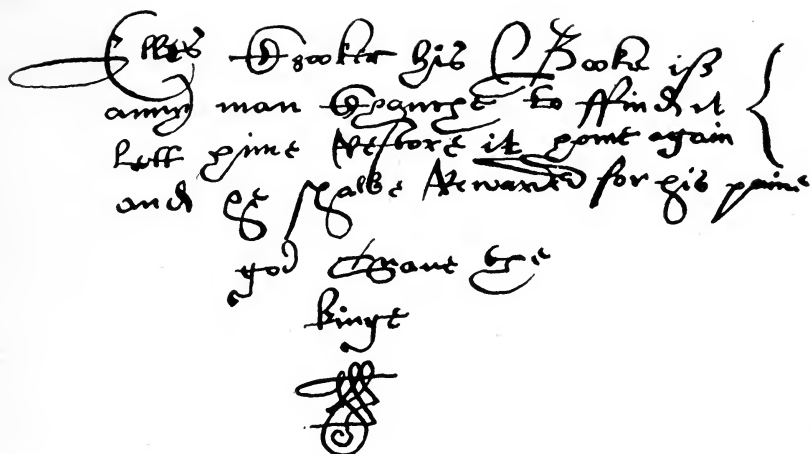 Ellis Crooker his Booke iff
anny man Chance to ffind it
lett hime Restore it home again
and he shalbe Rewarded for his paine
god Grant the
kinge